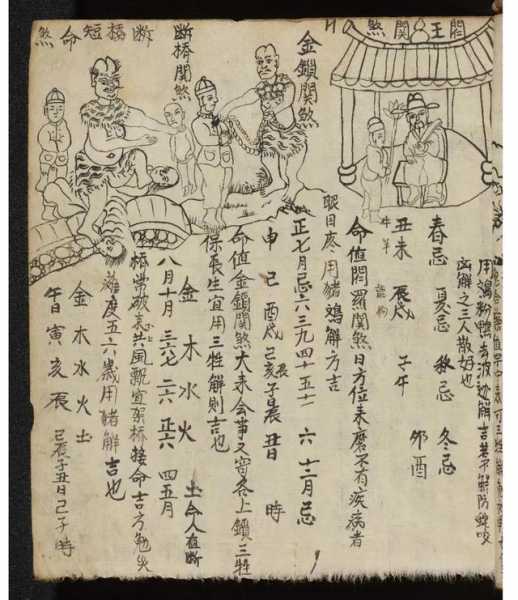 閻王關煞
用粉鴨去解吉若不解防蛇咬
凶解之三人散好也
春忌 夏忌 秋忌 冬忌
丑未 辰戌 子午 卯酉
牛羊 龍狗
命值閻羅關煞日方位未磨不有疾病者
眼目疼用猪解方吉
金鎖關煞
正七月忌六三九四十五十一 六十二月忌
申己 酉戌 己亥子辰 丑日 時
命值金鎖關煞大來会事又宮各上鎖三牲
保長生宜用三牲解則吉也
斷橋關煞
金 木 水 火 土命人值斷
八月十月 三六七 二六 正六 四五月
橋常破上共風飄宜架橋接命吉方免失
難度五六歲用猪解吉也
斷橋短命煞
金 木 水 火 土
午日 寅 亥 辰 己辰子丑日己子時